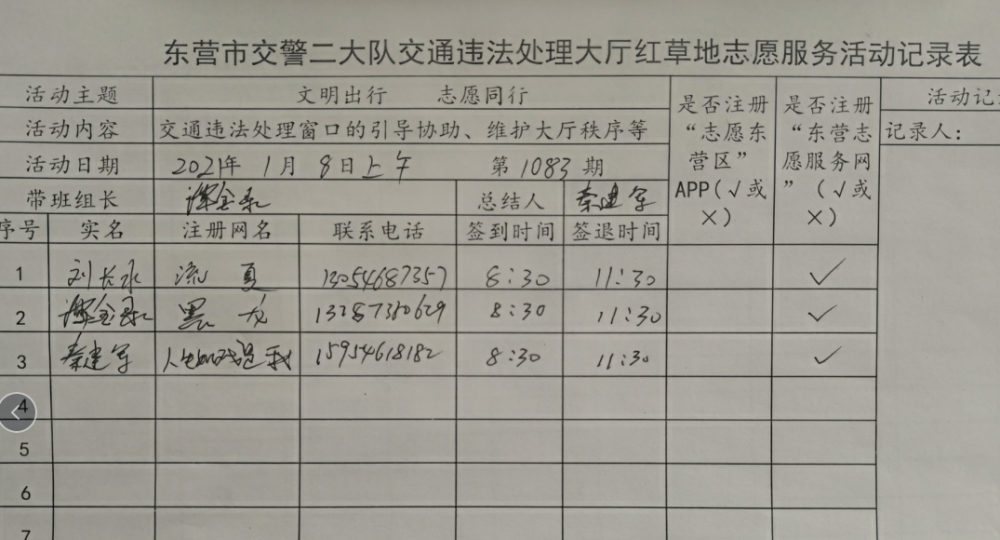 东营市交警二大队交通违法处理大厅红草地志愿服务活动记录表
活动主题 文明出行 志愿同行 是否注册“志愿东营区”APP(√或×) 是否注册“东营志愿服务网”(√或×) 活动记
活动内容 交通违法处理窗口的引导协助、维护大厅秩序等 记录人:
活动日期 2021年1月8日上午 第1083期
带班组长 总结人 秦建军
序号 实名 注册网名 联系电话 签到时间 签退时间
1 刘长水 流夏 13054687357 8:30 11:30 √
2 黑龙 13287380629 8:30 11:30 √
3 秦建军 15954618182 8:30 11:30 √
4
5
6
7